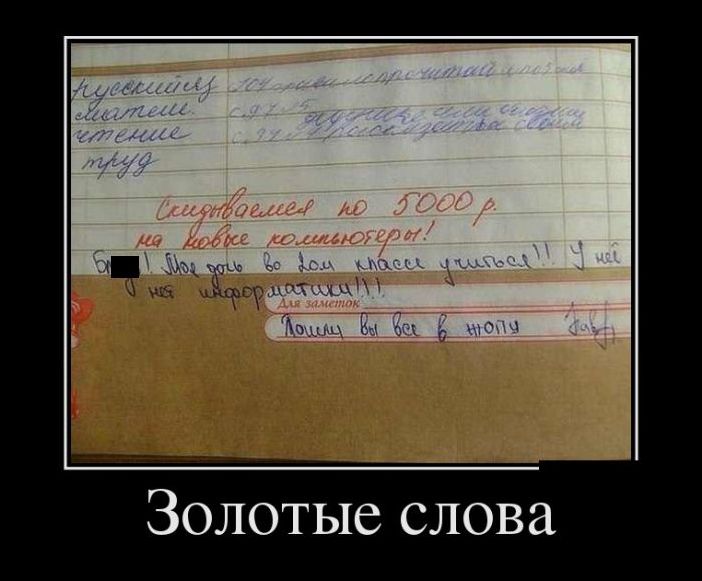 русский яз 104 правило прочитай
матем. с.97 №5
чтение с.94
труд
Скидываемся по 5000 р.
на новые компьютеры!
Б ! Моя дочь во 2ом классе учиться!! У неё
нет информатики!!!
Для заметок
Пошли вы все в жопу
Золотые слова